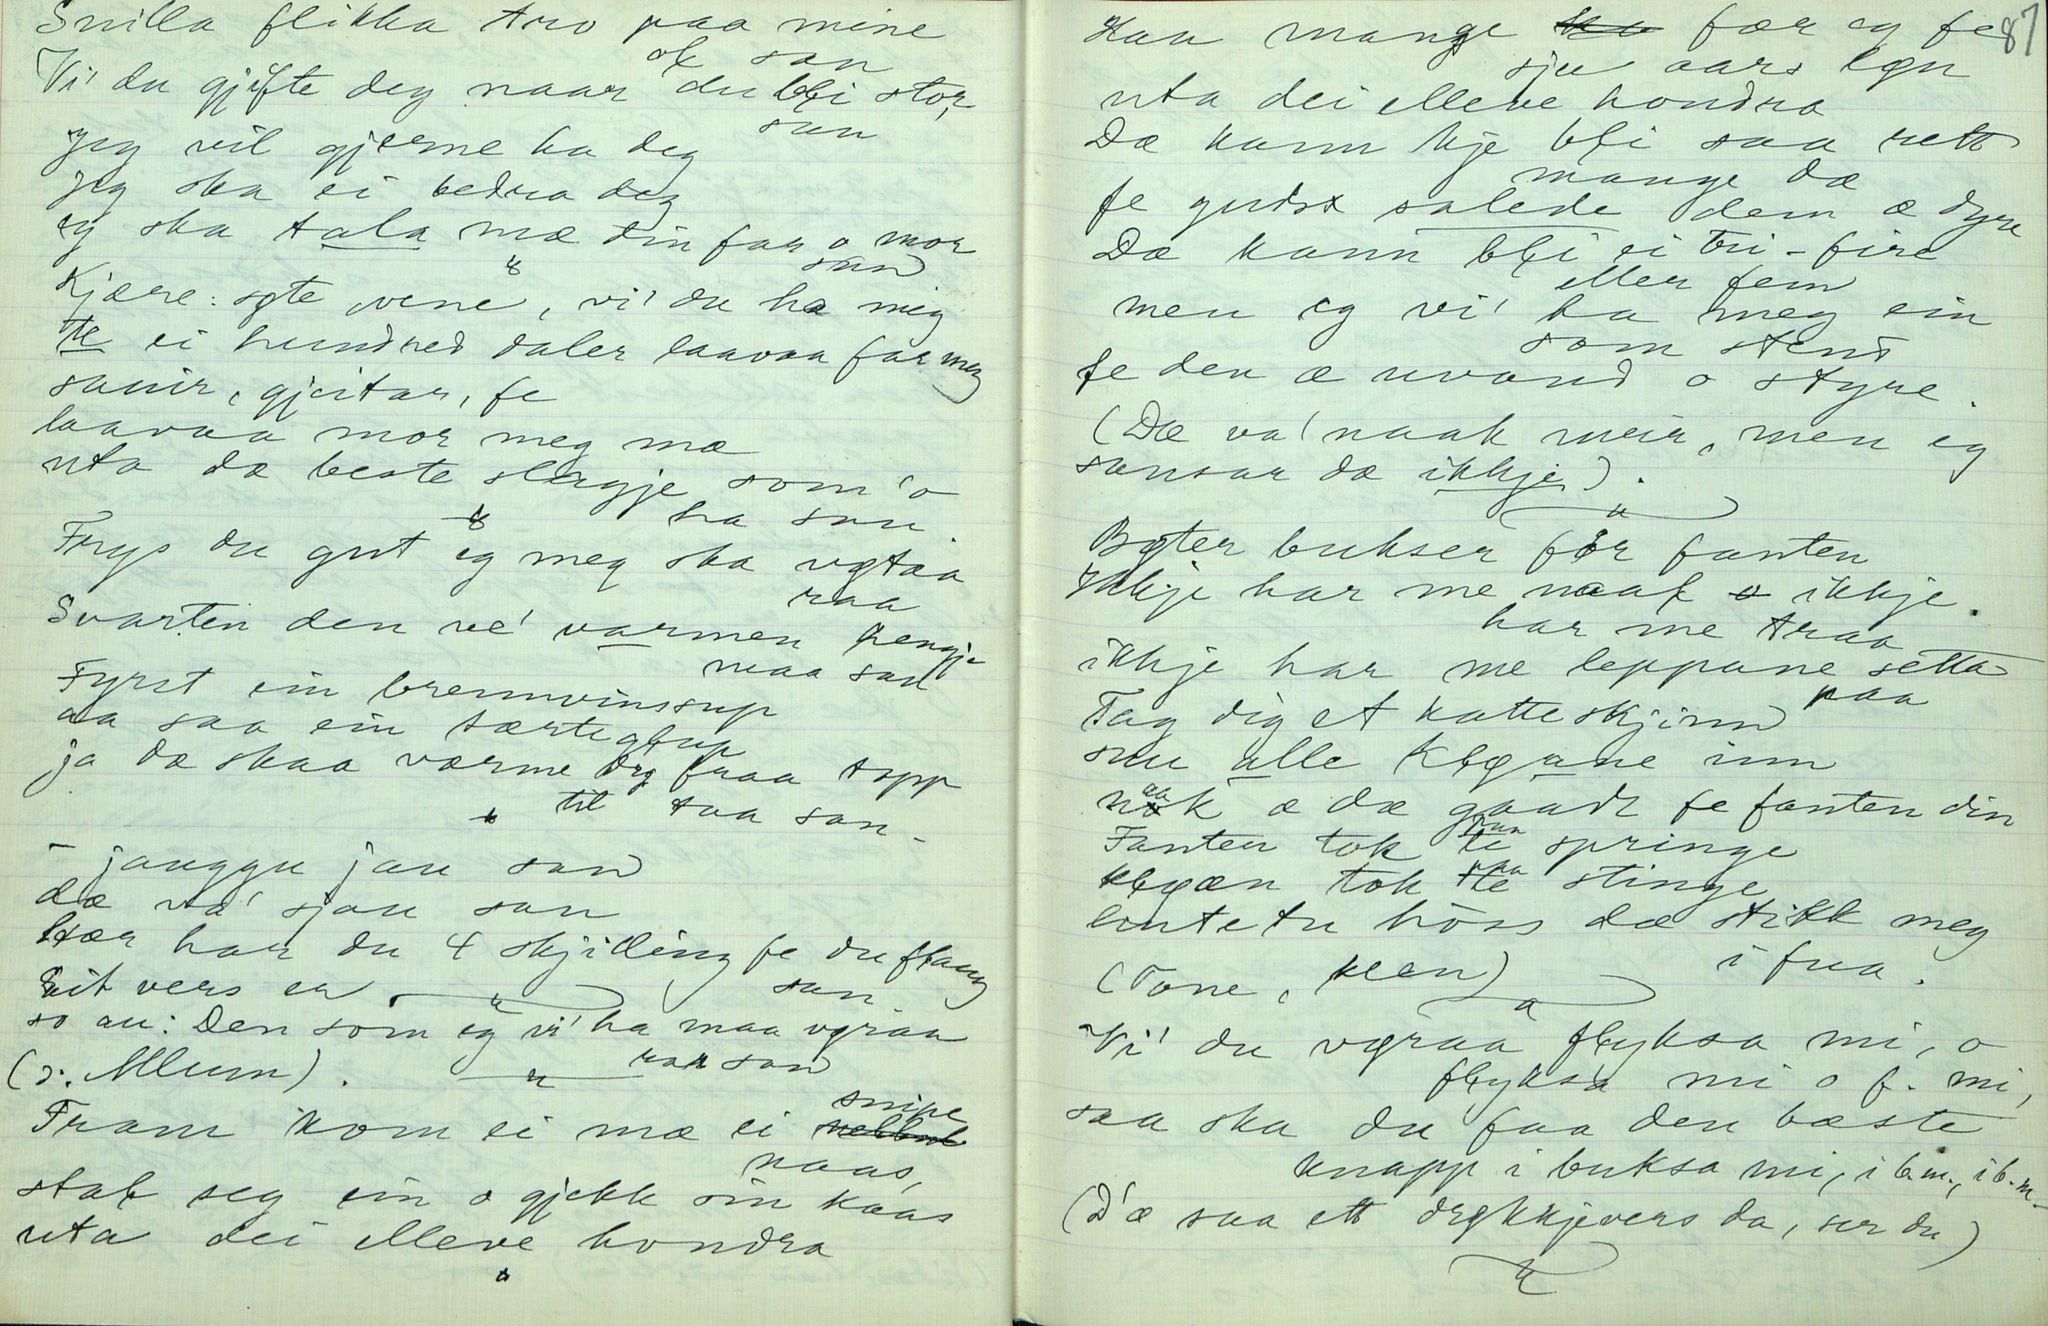 Snilla flikka tro paa mine
ok san
Vi' du gjifte deg naar du bli stor,
san
jeg vil gjerne ha deg
jeg ska ei bedra deg
eg ska tala mæ din far o mor
san
Kjære: søte vene, vi' du ha mig
te ei hundred daler laavaa far meg
sauir, gjeitar, fe
laavaa mor meg mæ
uta dæ beste slagje som 'o
ha san
Frys du gut eg meg ska vøtaa
raa
Svarten den ve' varmen hengje
maa san
Fyrst ein brennvinssup
aa saa ein tærteglup
ja dæ skaa værme deg fraa topp
til taa san -
- jauggu jau san
dæ va' sjau san
Hær har du 4 skjilling fe du flaug
san
Eit vers er
so au: Den som eg vi' ha maa vøraa
rar san
(s. Mlum).
Fram kom ei mæ ei snipe
naas,
stal seg ein o gjekk sin kaas
uta dei elleve hondra
87
Haa mange fær eg fe
sju aars løn
uta dei elleve hondra
Dæ kann kje bli saa rett
mange dæ
fe godst salede dem æ dyre
Dæ kann bli ei tri-fire
eller fem
men eg vi' ha meg ein
som stend
fe den æ uvand o styre.
(Dæ va' naak meir, men eg
sansar dæ ikkje).
Bøter bukser før fanten
Ikkje har me naal o ikkje
har me traa
ikkje har me leppane setta
paa
Tag dig et katteskjinn
snu alle kløane inn
naak æ dæ gaadt fe fanten din
Fanten tok paa springe
kløæn tok paa stinge
lentetu høss dæ stikk meg
i fua.
(Tone, kleen)
Vi' du vøraa flyksa mi, o
flyksa mi o f. mi,
saa ska du faa den bæste
knapp i buksa mi, i b.m., i b.m.
(D'æ saa ett drykkjevers da, ser du)